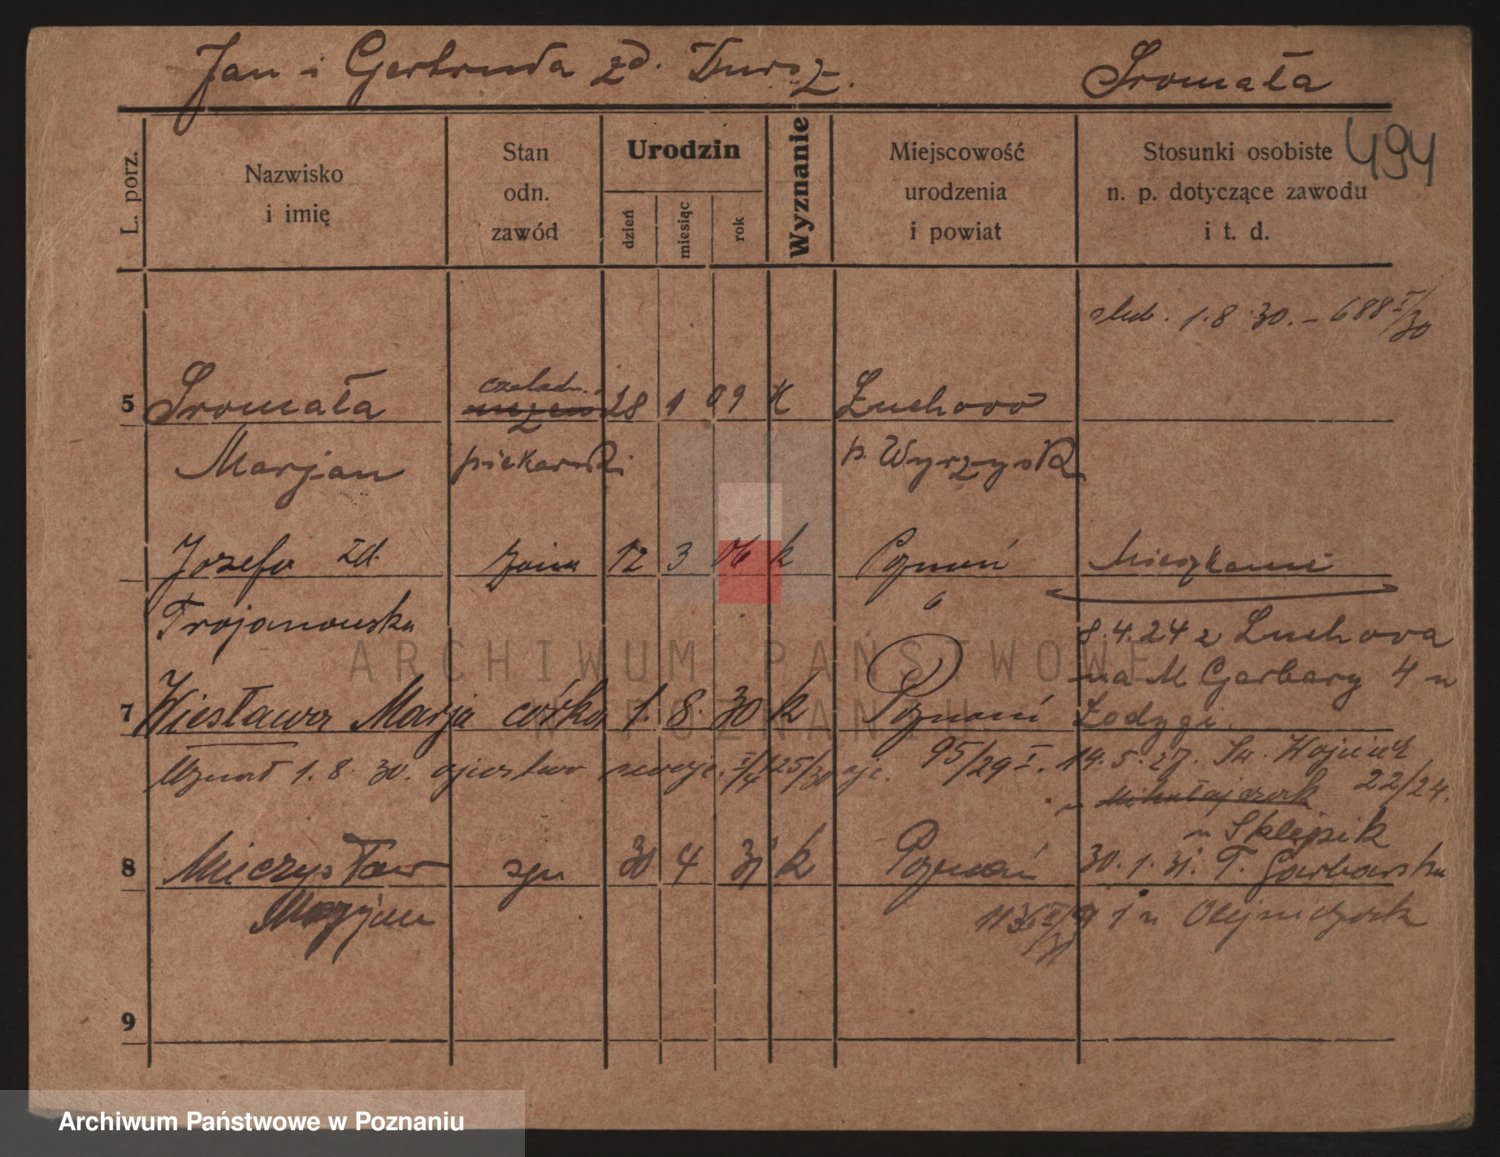 Jan i Gertruda zd. Dursz. Sromała
494
L. porz.
Nazwisko
i imię
Stan
odn.
zawód
Urodzin
dzień
miesiąc
rok
Wyznanie
Miejscowość
urodzenia
i powiat
Stosunki osobiste
n. p. dotyczące zawodu
i t. d.
ślub. 1.8.30. – 688 I/30
czeladn.
5 Sromała 28 1 09 k
Marjan piekarski p. Wyrzysk
Józefa zd. żona 12 3 06 k Poznań Mieszkanie
6
Trojanowska 8.4.24 z Łuchowa
na M Garbary 4 u
7 Wiesława Marja córka 1. 8. 30 k Poznań Łodygi
Uznał 1. 8. 30. ojcostwo 125/30 95/29 I. 14.5.27. Św. Wojciech
22/24.
u Mikołajczak
u Sklepik
8 Mieczysław syn 30 4 31 k Poznań 30.1.31. T. Garbarska
Marjan 1 u Olejniczak
9
ARCHIWUM PAŃSTWOWE
W POZNANIU
Archiwum Państwowe w Poznaniu